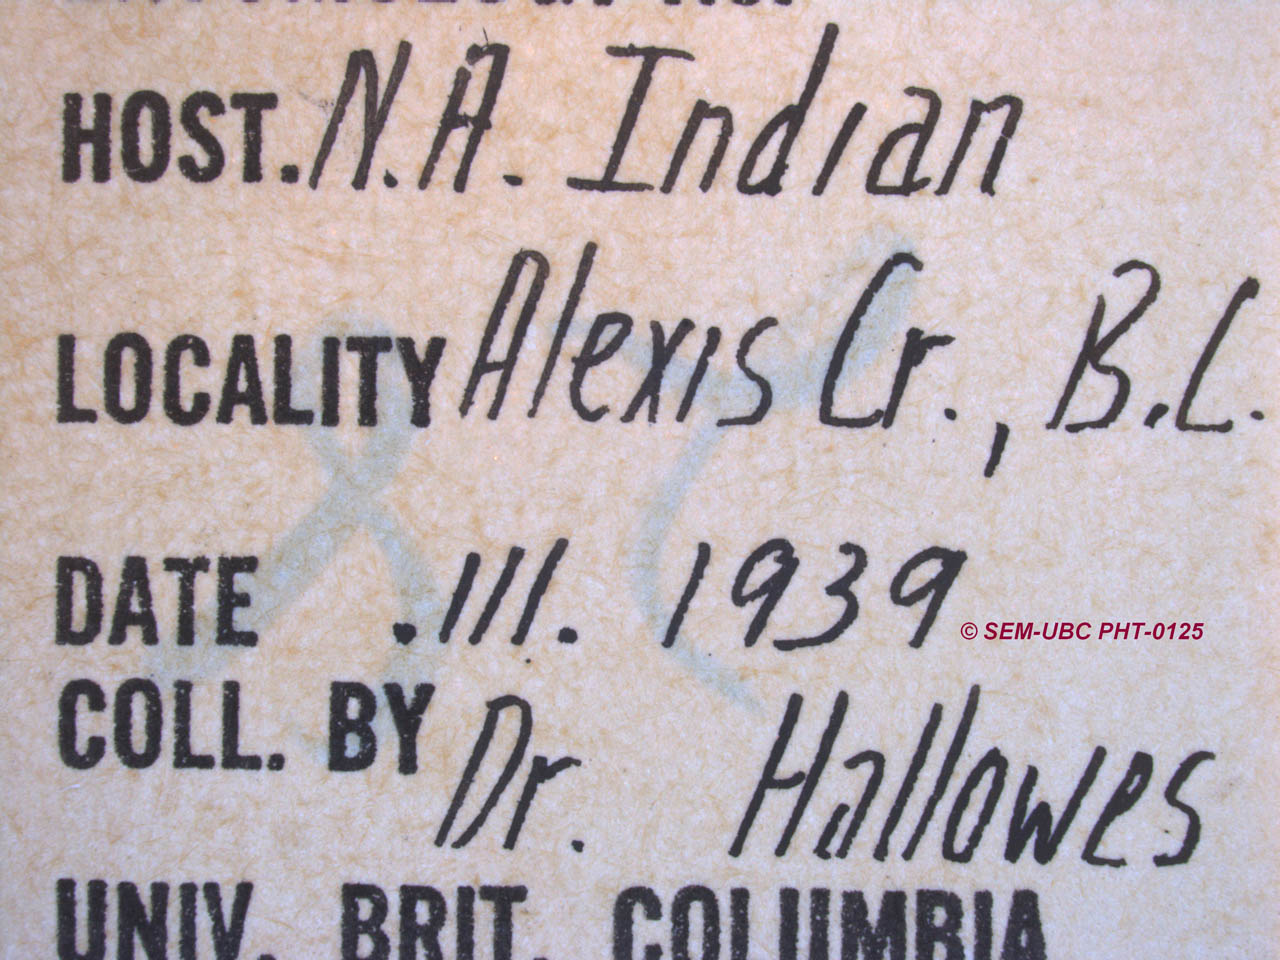 HOST. N.A. Indian
LOCALITY Alexis Cr., B.C.
DATE .III. 1939
© SEM-UBC PHT-0125
COLL. BY Dr. Hallowes
UNIV. BRIT. COLUMBIA